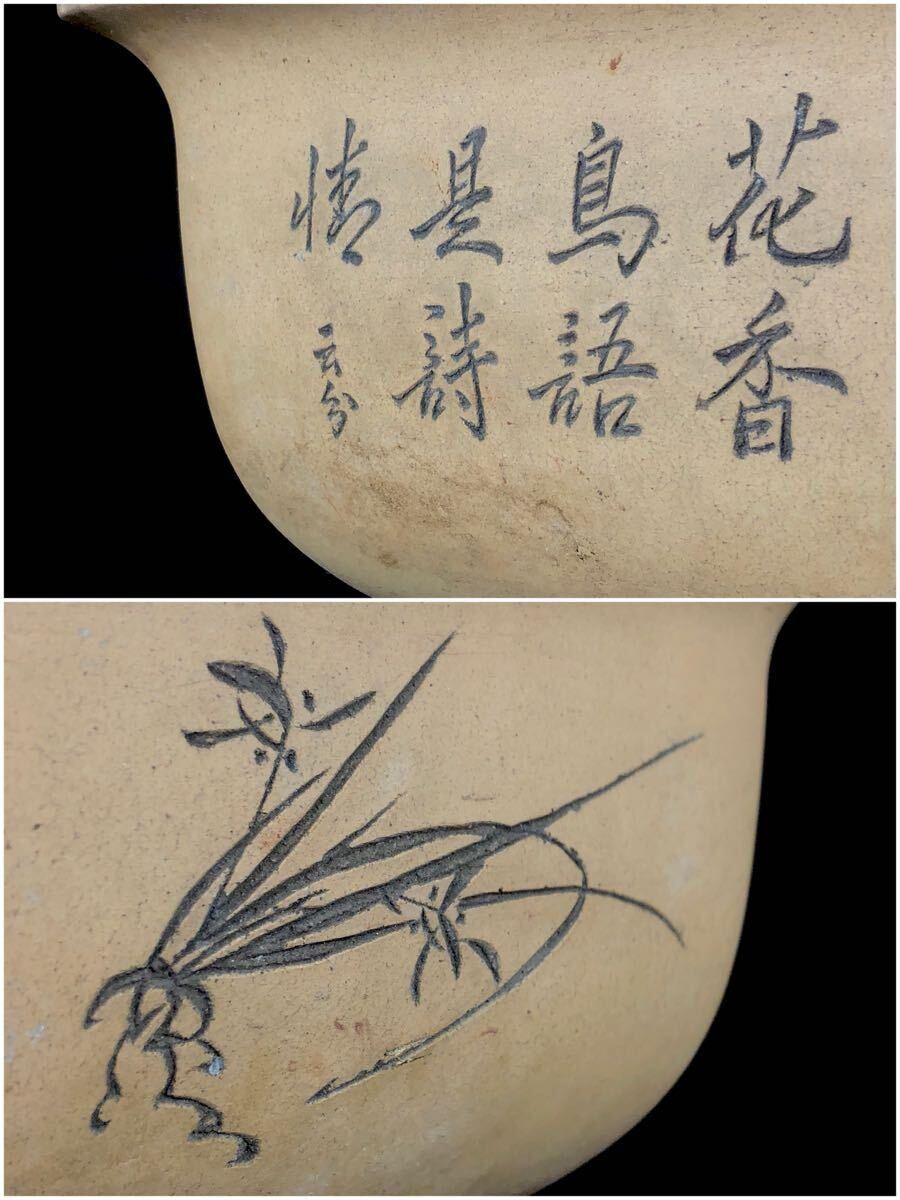 花香
鳥語
是詩
情
云芬